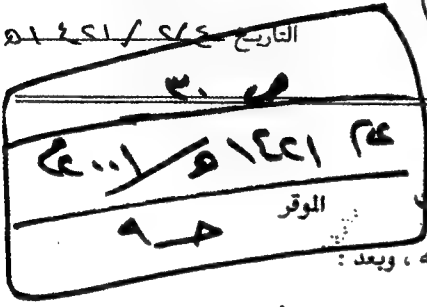 التاريخ ٢/٤ /١٤٢١هـ
ص ٣٠
عام ١٤٢١هـ/٢٠٠١م
الموقر
حـ ٩
، وبعد :